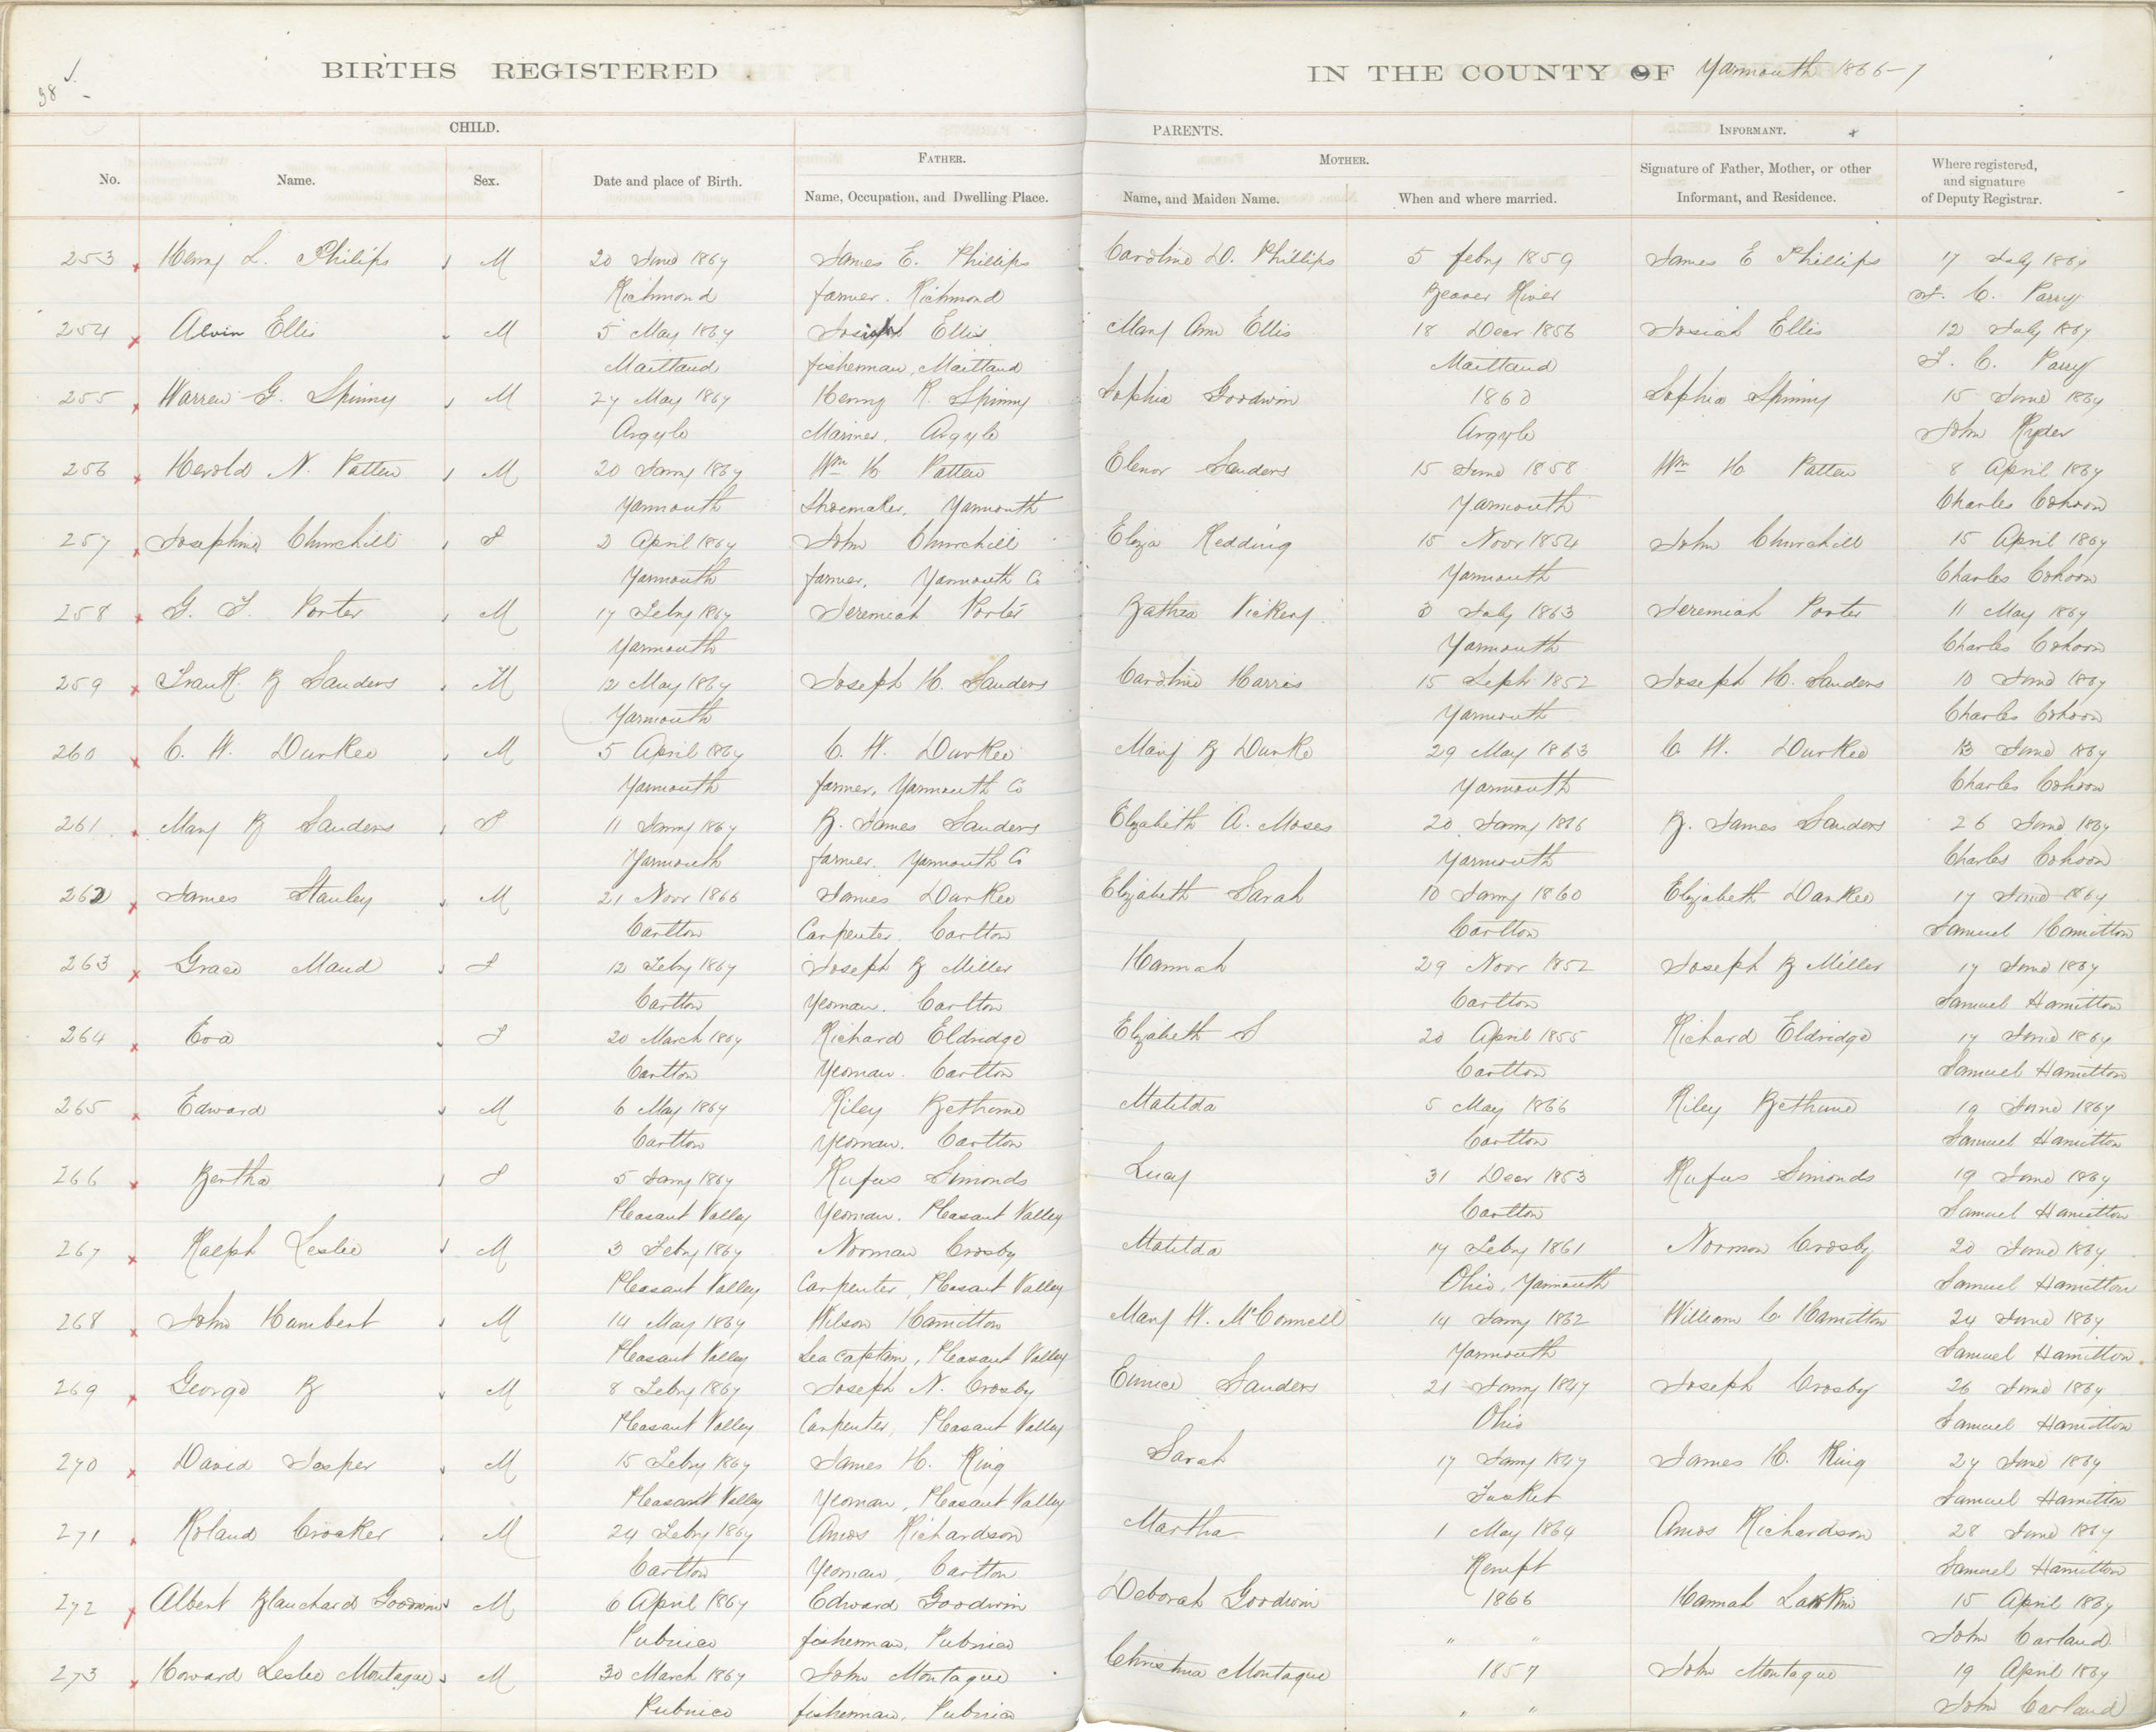 38
BIRTHS REGISTERED IN THE COUNTY OF Yarmouth 1866-7
CHILD. PARENTS. INFORMANT.
No. Name. Sex. Date and place of Birth. FATHER. Name, Occupation, and Dwelling Place. MOTHER. Name, and Maiden Name. When and where married. Signature of Father, Mother, or other Informant, and Residence. Where registered, and signature of Deputy Registrar.
253 Henry L. Philips M 20 June 1867 James E. Phillips Caroline D. Phillips 5 feby 1859 James E Phillips 17 July 1867
Richmond farmer. Richmond Beaver River J. C. Parry
254 Alvin Ellis M 5 May 1867 Josiah Ellis Mary Ann Ellis 18 Decr 1856 Josiah Ellis 12 July 1867
Maitland fisherman, Maitland Maitland J. C. Parry
255 Warren G. Spinny M 27 May 1867 Henry R. Spinny Sophia Goodwin 1860 Sophia Spinny 15 June 1867
Argyle Mariner. Argyle Argyle John Ryder
256 Herold N. Patten M 20 Jany 1867 Wm H Patten Elenor Sanders 15 June 1858 Wm H Patten 8 April 1867
Yarmouth Shoemaker. Yarmouth Yarmouth Charles Cohoon
257 Josephine Churchill F 2 April 1867 John Churchill Eliza Redding 15 Novr 1854 John Churchill 15 April 1867
Yarmouth farmer. Yarmouth Co Yarmouth Charles Cohoon
258 G. F. Porter M 17 Feby 1867 Jeremiah Porter Bathia Vickery 3 July 1863 Jeremiah Porter 11 May 1867
Yarmouth Yarmouth Charles Cohoon
259 Frank B Sanders M 12 May 1867 Joseph H. Sanders Caroline Harris 15 Septr 1852 Joseph H. Sanders 10 June 1867
Yarmouth Yarmouth Charles Cohoon
260 C. H. Durkee M 5 April 1867 C. H. Durkee Mary B Durke 29 May 1863 C H. Durkee 13 June 1867
Yarmouth farmer, Yarmouth Co Yarmouth Charles Cohoon
261 Mary B Sanders F 11 Jany 1867 B. James Sanders Elizabeth A. Moses 20 Jany 1866 B. James Sanders 26 June 1867
Yarmouth farmer. Yarmouth Co Yarmouth Charles Cohoon
262 James Stanley M 21 Novr 1866 James Durkee Elizabeth Sarah 10 Jany 1860 Elizabeth Durkee 17 June 1867
Carlton Carpenter. Carlton Carlton Samuel Hamilton
263 Grace Maud F 12 Feby 1867 Joseph B Miller Hannah 29 Novr 1852 Joseph B Miller 17 June 1867
Carlton Yeoman. Carlton Carlton Samuel Hamilton
264 Eva F 20 March 1867 Richard Eldridge Elizabeth S 20 April 1855 Richard Eldridge 17 June 1867
Carlton Yeoman. Carlton Carlton Samuel Hamilton
265 Edward M 6 May 1867 Riley Bethune Matilda 5 May 1866 Riley Bethune 19 June 1867
Carlton Yeoman. Carlton Carlton Samuel Hamilton
266 Bertha F 5 Jany 1867 Rufus Simonds Lucy 31 Decr 1853 Rufus Simonds 19 June 1867
Pleasant Valley Yeoman. Pleasant Valley Carlton Samuel Hamilton
267 Ralph Leslie M 3 Feby 1867 Norman Crosby Matilda 17 Feby 1861 Norman Crosby 20 June 1867
Pleasant Valley Carpenter, Pleasant Valley Ohio, Yarmouth Samuel Hamilton
268 John Humbert M 14 May 1867 Wilson Hamilton Mary H. McConnell 14 Jany 1862 William C Hamilton 24 June 1867
Pleasant Valley Sea Captain, Pleasant Valley Yarmouth Samuel Hamilton
269 George B M 8 Feby 1867 Joseph N. Crosby Eunice Sanders 21 Jany 1847 Joseph Crosby 26 June 1867
Pleasant Valley Carpenter, Pleasant Valley Ohio Samuel Hamilton
270 David Jasper M 15 Feby 1867 James H. King Sarah 17 Jany 1847 James H. King 27 June 1867
Pleasant Valley Yeoman, Pleasant Valley Tusket Samuel Hamilton
271 Roland Crocker M 24 Feby 1867 Amos Richardson Martha 1 May 1864 Amos Richardson 28 June 1867
Carlton Yeoman, Carlton Kempt Samuel Hamilton
272 Albert Blanchard Goodwin M 6 April 1867 Edward Goodwin Deborah Goodwin 1866 Hannah Larkin 15 April 1867
Pubnico fisherman, Pubnico " " John Carland
273 Howard Leslie Montague M 30 March 1867 John Montague Christina Montague 1857 John Montague 19 April 1867
Pubnico fisherman, Pubnico " " John Carland